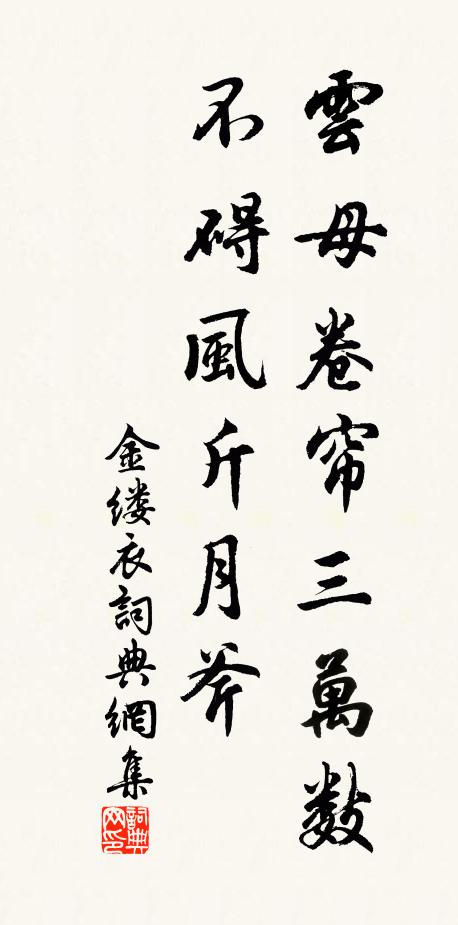 雲母卷帘三萬數
不碍風斤月斧
金缕衣詞典網集
詞典
网印